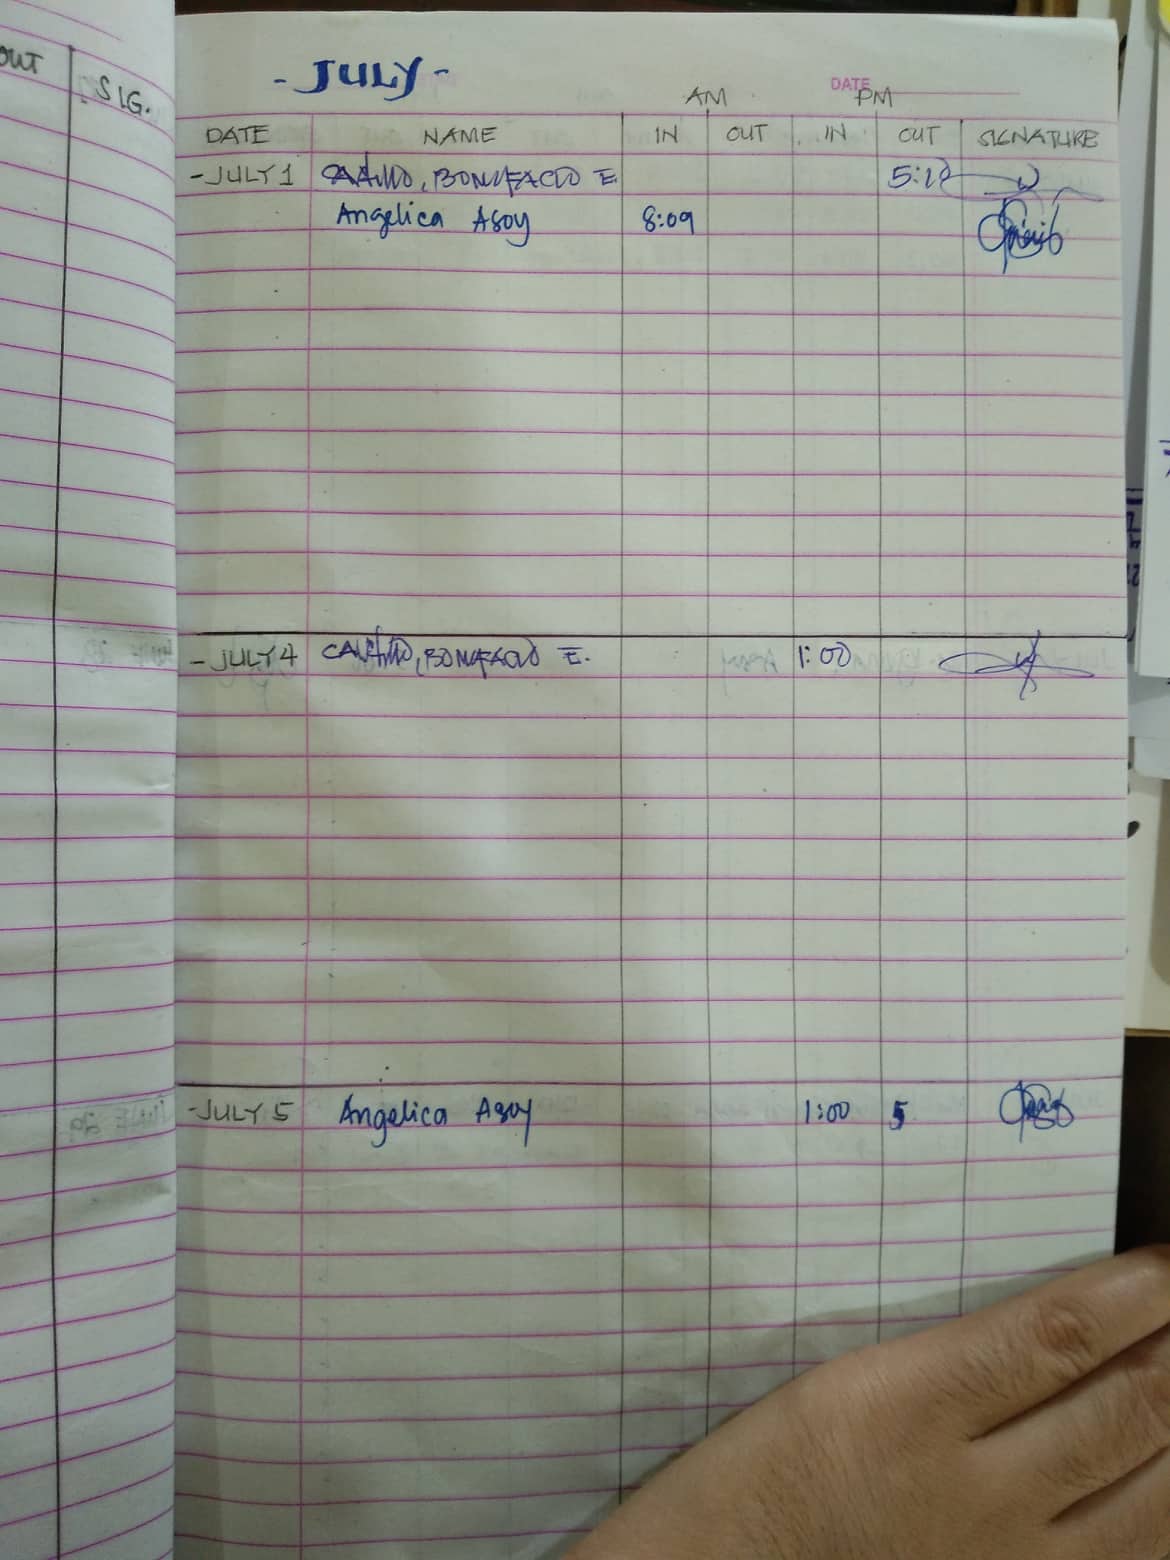 OUT SIG.
- JULY -
DATE
AM PM
DATE NAME IN OUT IN OUT SIGNATURE
- JULY 1 BONIFACIO E
Angelica Asoy 8:09
- JULY 4 BONIFACIO E. 1:00
- JULY 5 Angelica Asoy 1:00 5